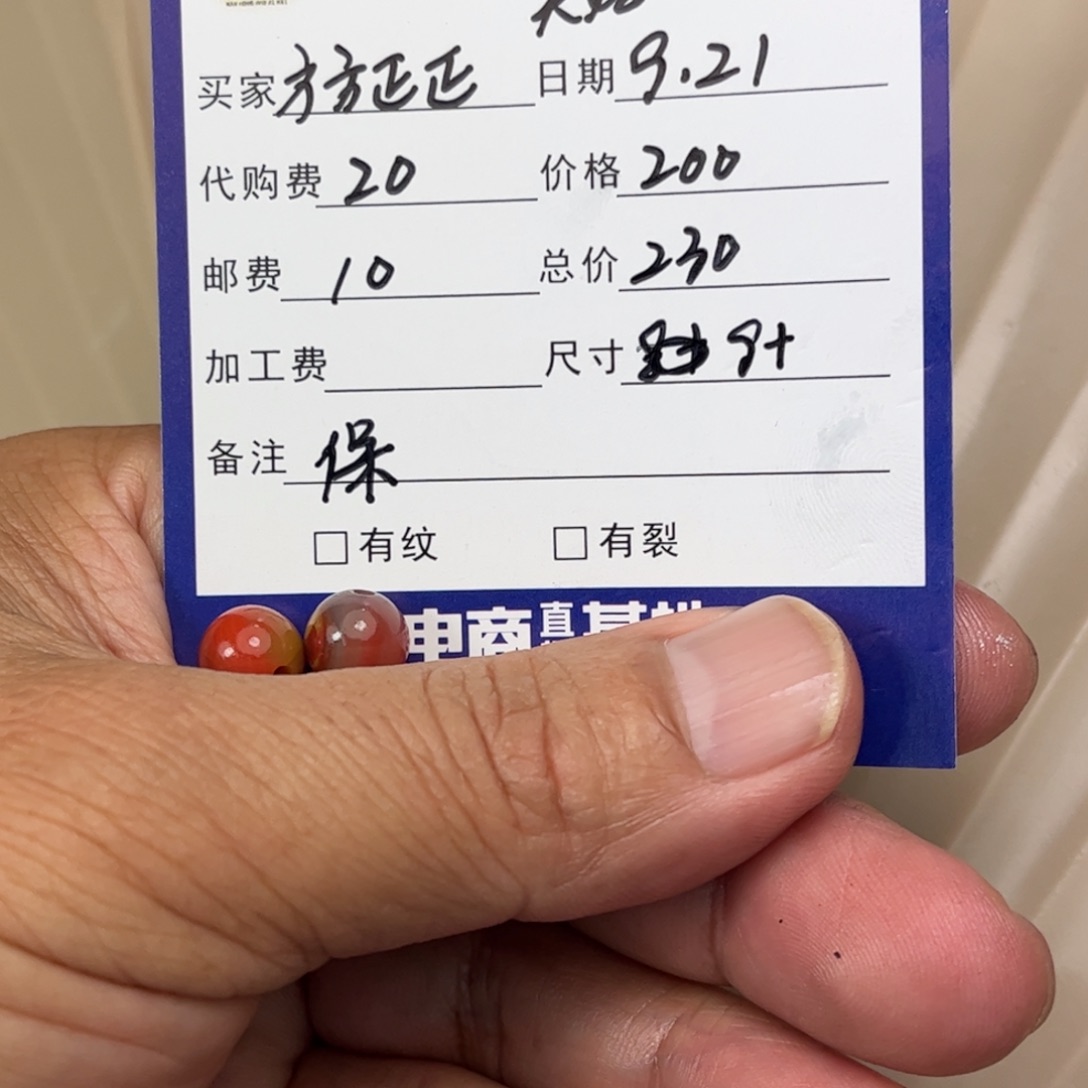 买家 方方正正 日期 9.21
代购费 20 价格 200
邮费 10 总价 230
加工费 尺寸 9+
备注 保
□有纹 □有裂
电商真基地